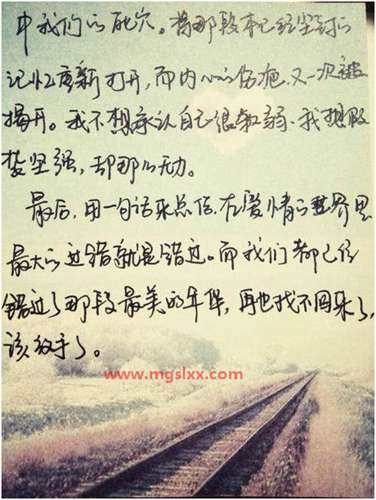 中我们的死穴。将那段本已经尘封的
记忆重新打开,而内心的伤疤又一次被
揭开。我不想承认自己很软弱,我想假
装坚强,却那么无力。
最后,用一句话来总结,在爱情的世界里
最大的过错就是错过。而我们都已经
错过了那段最美的年华,再也找不回来了,
该放手了。
www.mgslxx.com